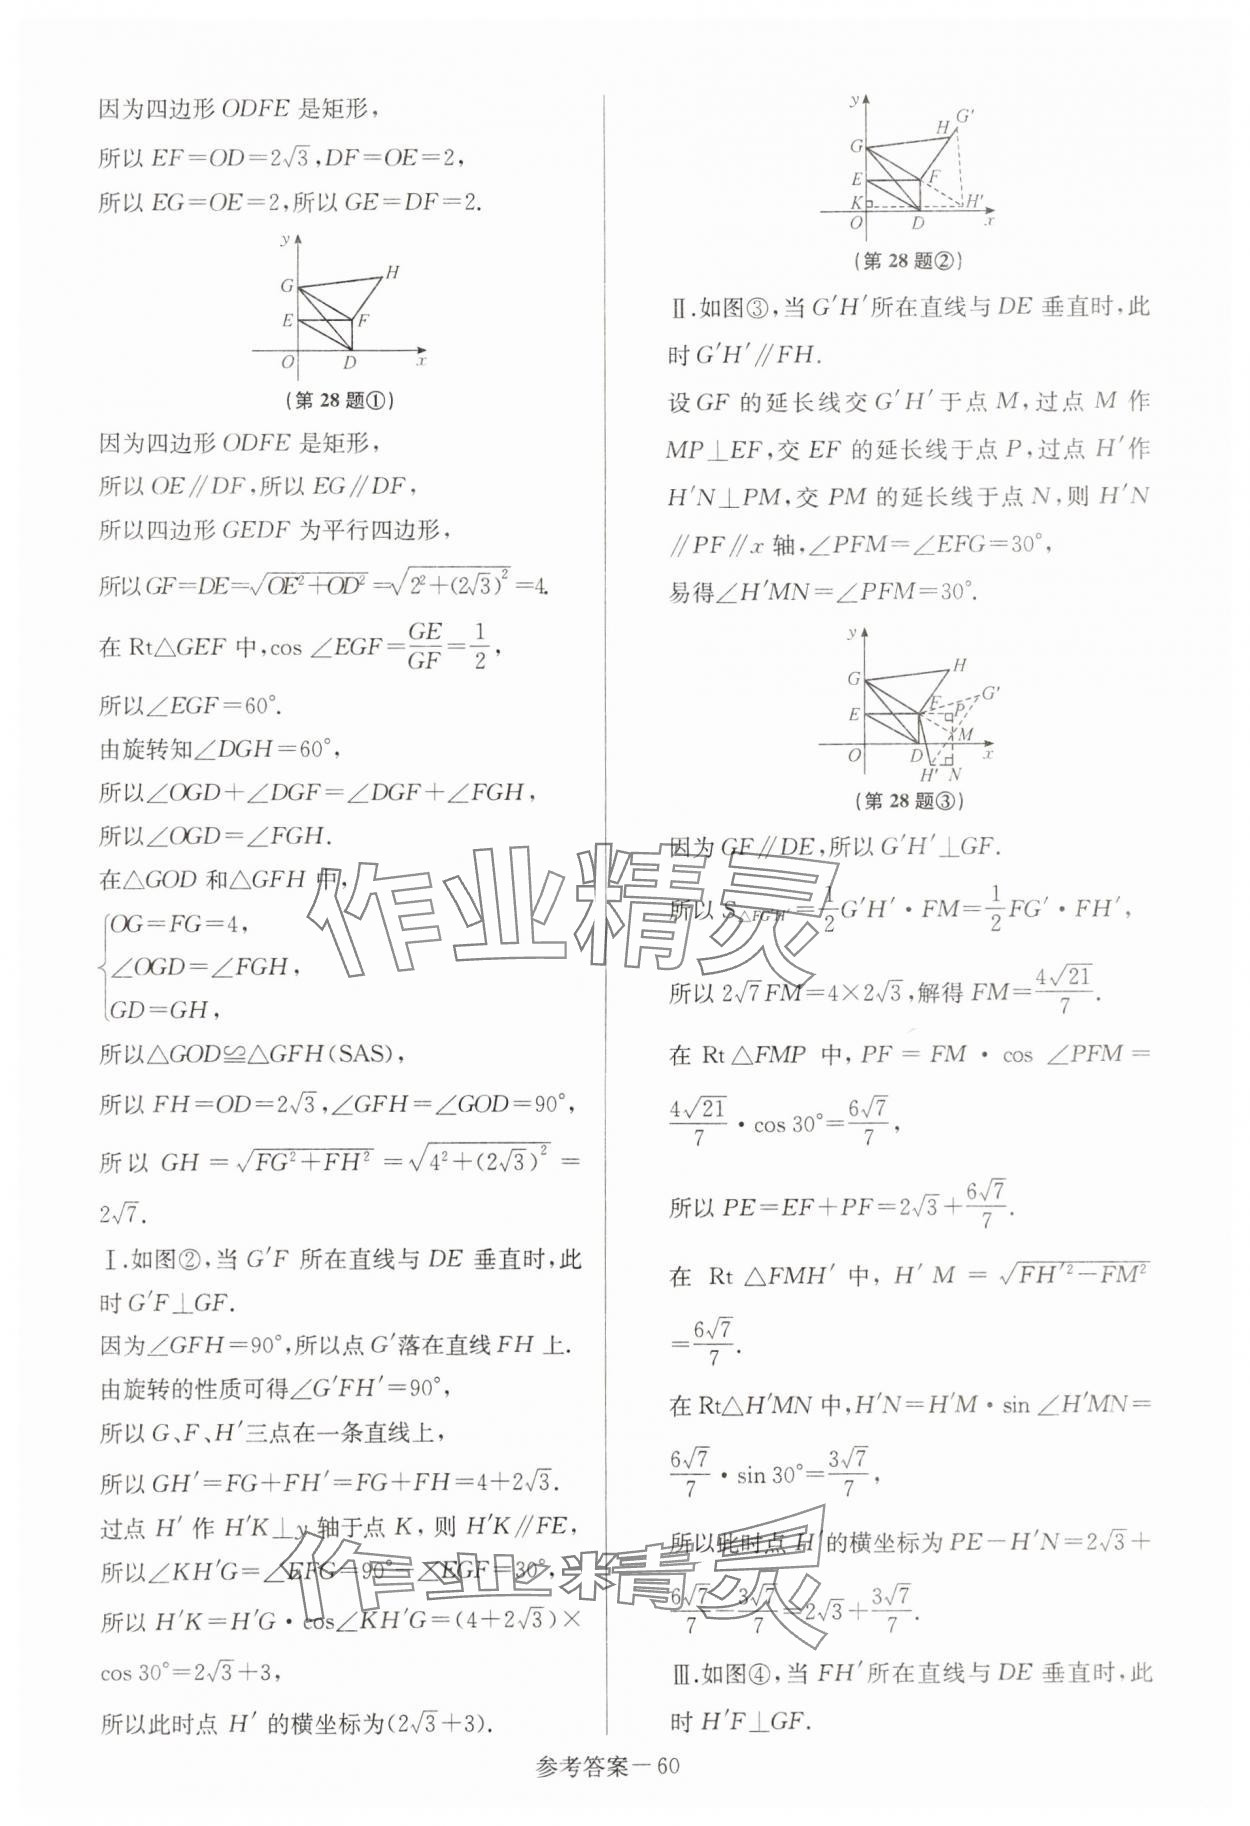 因为四边形 ODFE 是矩形,
所以 EF=OD=2√3,DF=OE=2,
所以 EG=OE=2,所以 GE=DF=2.
y
G
H
E
F
O
D
x
(第 28 题①)
因为四边形 ODFE 是矩形,
所以 OE∥DF,所以 EG∥DF,
所以四边形 GEDF 为平行四边形,
所以 GF=DE=√(OE²+OD²)=√(2²+(2√3)²)=4.
在 Rt△GEF 中,cos ∠EGF=GE/GF=1/2,
所以∠EGF=60°.
由旋转知∠DGH=60°,
所以∠OGD+∠DGF=∠DGF+∠FGH,
所以∠OGD=∠FGH.
在△GOD 和△GFH 中,
{OG=FG=4,
∠OGD=∠FGH,
GD=GH,
所以△GOD≌△GFH(SAS),
所以 FH=OD=2√3,∠GFH=∠GOD=90°,
所以 GH=√(FG²+FH²)=√(4²+(2√3)²)=
2√7.
Ⅰ.如图②,当 G′F 所在直线与 DE 垂直时,此
时 G′F⊥GF.
因为∠GFH=90°,所以点 G′落在直线 FH 上.
由旋转的性质可得∠G′FH′=90°,
所以 G、F、H′三点在一条直线上,
所以 GH′=FG+FH′=FG+FH=4+2√3.
过点 H′ 作 H′K⊥y 轴于点 K, 则 H′K∥FE,
所以∠KH′G=∠EFG=90°−∠EGF=30°,
所以 H′K=H′G·cos∠KH′G=(4+2√3)×
cos 30°=2√3+3,
所以此时点 H′ 的横坐标为(2√3+3).
y
G′
H
G
E
F
K
H′
O
D
x
(第 28 题②)
Ⅱ.如图③,当 G′H′所在直线与 DE 垂直时,此
时 G′H′∥FH.
设 GF 的延长线交 G′H′于点 M,过点 M 作
MP⊥EF,交 EF 的延长线于点 P,过点 H′作
H′N⊥PM,交 PM 的延长线于点 N,则 H′N
∥PF∥x 轴,∠PFM=∠EFG=30°,
易得∠H′MN=∠PFM=30°.
y
H
G
G′
E
F
P
M
O
D
x
H′
N
(第 28 题③)
因为 GF∥DE,所以 G′H′⊥GF.
所以 S△FG′H′=1/2 G′H′·FM=1/2 FG′·FH′,
所以 2√7FM=4×2√3,解得 FM=4√21/7.
在 Rt△FMP 中, PF=FM·cos ∠PFM=
4√21/7·cos 30°=6√7/7,
所以 PE=EF+PF=2√3+6√7/7.
在 Rt△FMH′中, H′M=√(FH′²−FM²)
=6√7/7.
在 Rt△H′MN 中,H′N=H′M·sin ∠H′MN=
6√7/7·sin 30°=3√7/7,
所以此时点 H′的横坐标为 PE−H′N=2√3+
6√7/7−3√7/7=2√3+3√7/7.
Ⅲ.如图④,当 FH′所在直线与 DE 垂直时,此
时 H′F⊥GF.
参考答案—60
作业精灵
作业精灵